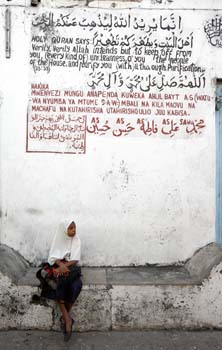 إنما يريد الله ليذهب عنكم الرجس
أهل البيت ويطهركم تطهيرا
HOLY QURAN SAYS
Verily Allah intends but to keep off from
you (every kind of) uncleanness o' you the people
of the House, and purify you (with) a thorough Purification
اللهم صل على محمد وآل محمد
HAKIKA
MWENYEZI MUNGU ANAPENDA KUWEKA AHLIL BAYT AS (WATU
WA NYUMBA YA MTUME SAW) MBALI NA KILA MAOVU NA
MACHAFU NA KUTAKIRISHA UTAKIRISHO ULIO JUU KABISA.
محمد SAW علی AS فاطمة AS حسن AS حسین AS